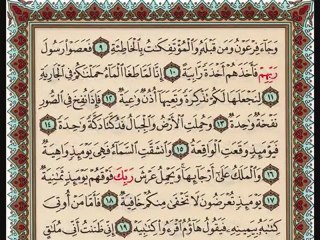 وَجَآءَ فِرْعَوْنُ وَمَن قَبْلَهُۥ وَٱلْمُؤْتَفِكَٰتُ بِٱلْخَاطِئَةِ ٩ فَعَصَوْا۟ رَسُولَ
رَبِّهِمْ فَأَخَذَهُمْ أَخْذَةً رَّابِيَةً ١٠ إِنَّا لَمَّا طَغَا ٱلْمَآءُ حَمَلْنَٰكُمْ فِى ٱلْجَارِيَةِ
١١ لِنَجْعَلَهَا لَكُمْ تَذْكِرَةً وَتَعِيَهَآ أُذُنٌ وَٰعِيَةٌ ١٢ فَإِذَا نُفِخَ فِى ٱلصُّورِ
نَفْخَةٌ وَٰحِدَةٌ ١٣ وَحُمِلَتِ ٱلْأَرْضُ وَٱلْجِبَالُ فَدُكَّتَا دَكَّةً وَٰحِدَةً ١٤
فَيَوْمَئِذٍ وَقَعَتِ ٱلْوَاقِعَةُ ١٥ وَٱنشَقَّتِ ٱلسَّمَآءُ فَهِىَ يَوْمَئِذٍ وَاهِيَةٌ
١٦ وَٱلْمَلَكُ عَلَىٰٓ أَرْجَآئِهَا وَيَحْمِلُ عَرْشَ رَبِّكَ فَوْقَهُمْ يَوْمَئِذٍ ثَمَٰنِيَةٌ
١٧ يَوْمَئِذٍ تُعْرَضُونَ لَا تَخْفَىٰ مِنكُمْ خَافِيَةٌ ١٨ فَأَمَّا مَنْ أُوتِىَ
كِتَٰبَهُۥ بِيَمِينِهِۦ فَيَقُولُ هَآؤُمُ ٱقْرَءُوا۟ كِتَٰبِيَهْ ١٩ إِنِّى ظَنَنتُ أَنِّى مُلَٰقٍ